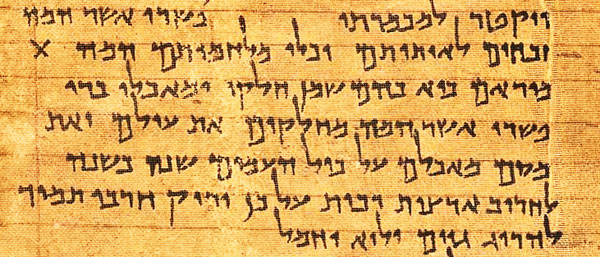 ויקטר למכמרתו פשרו אשר המה
זבחים לאותותם וכלי מלחמותם המה X
מוראם כיא בהם שמן חלקו ומאכלו ברי
פשרו אשר המה מחלקים את עולם ואת
מסם מאכלם על כול העמים שנה בשנה
לחריב ארצות רבות על כן יריק חרבו תמיד
להרוג גוים ולוא יחמל